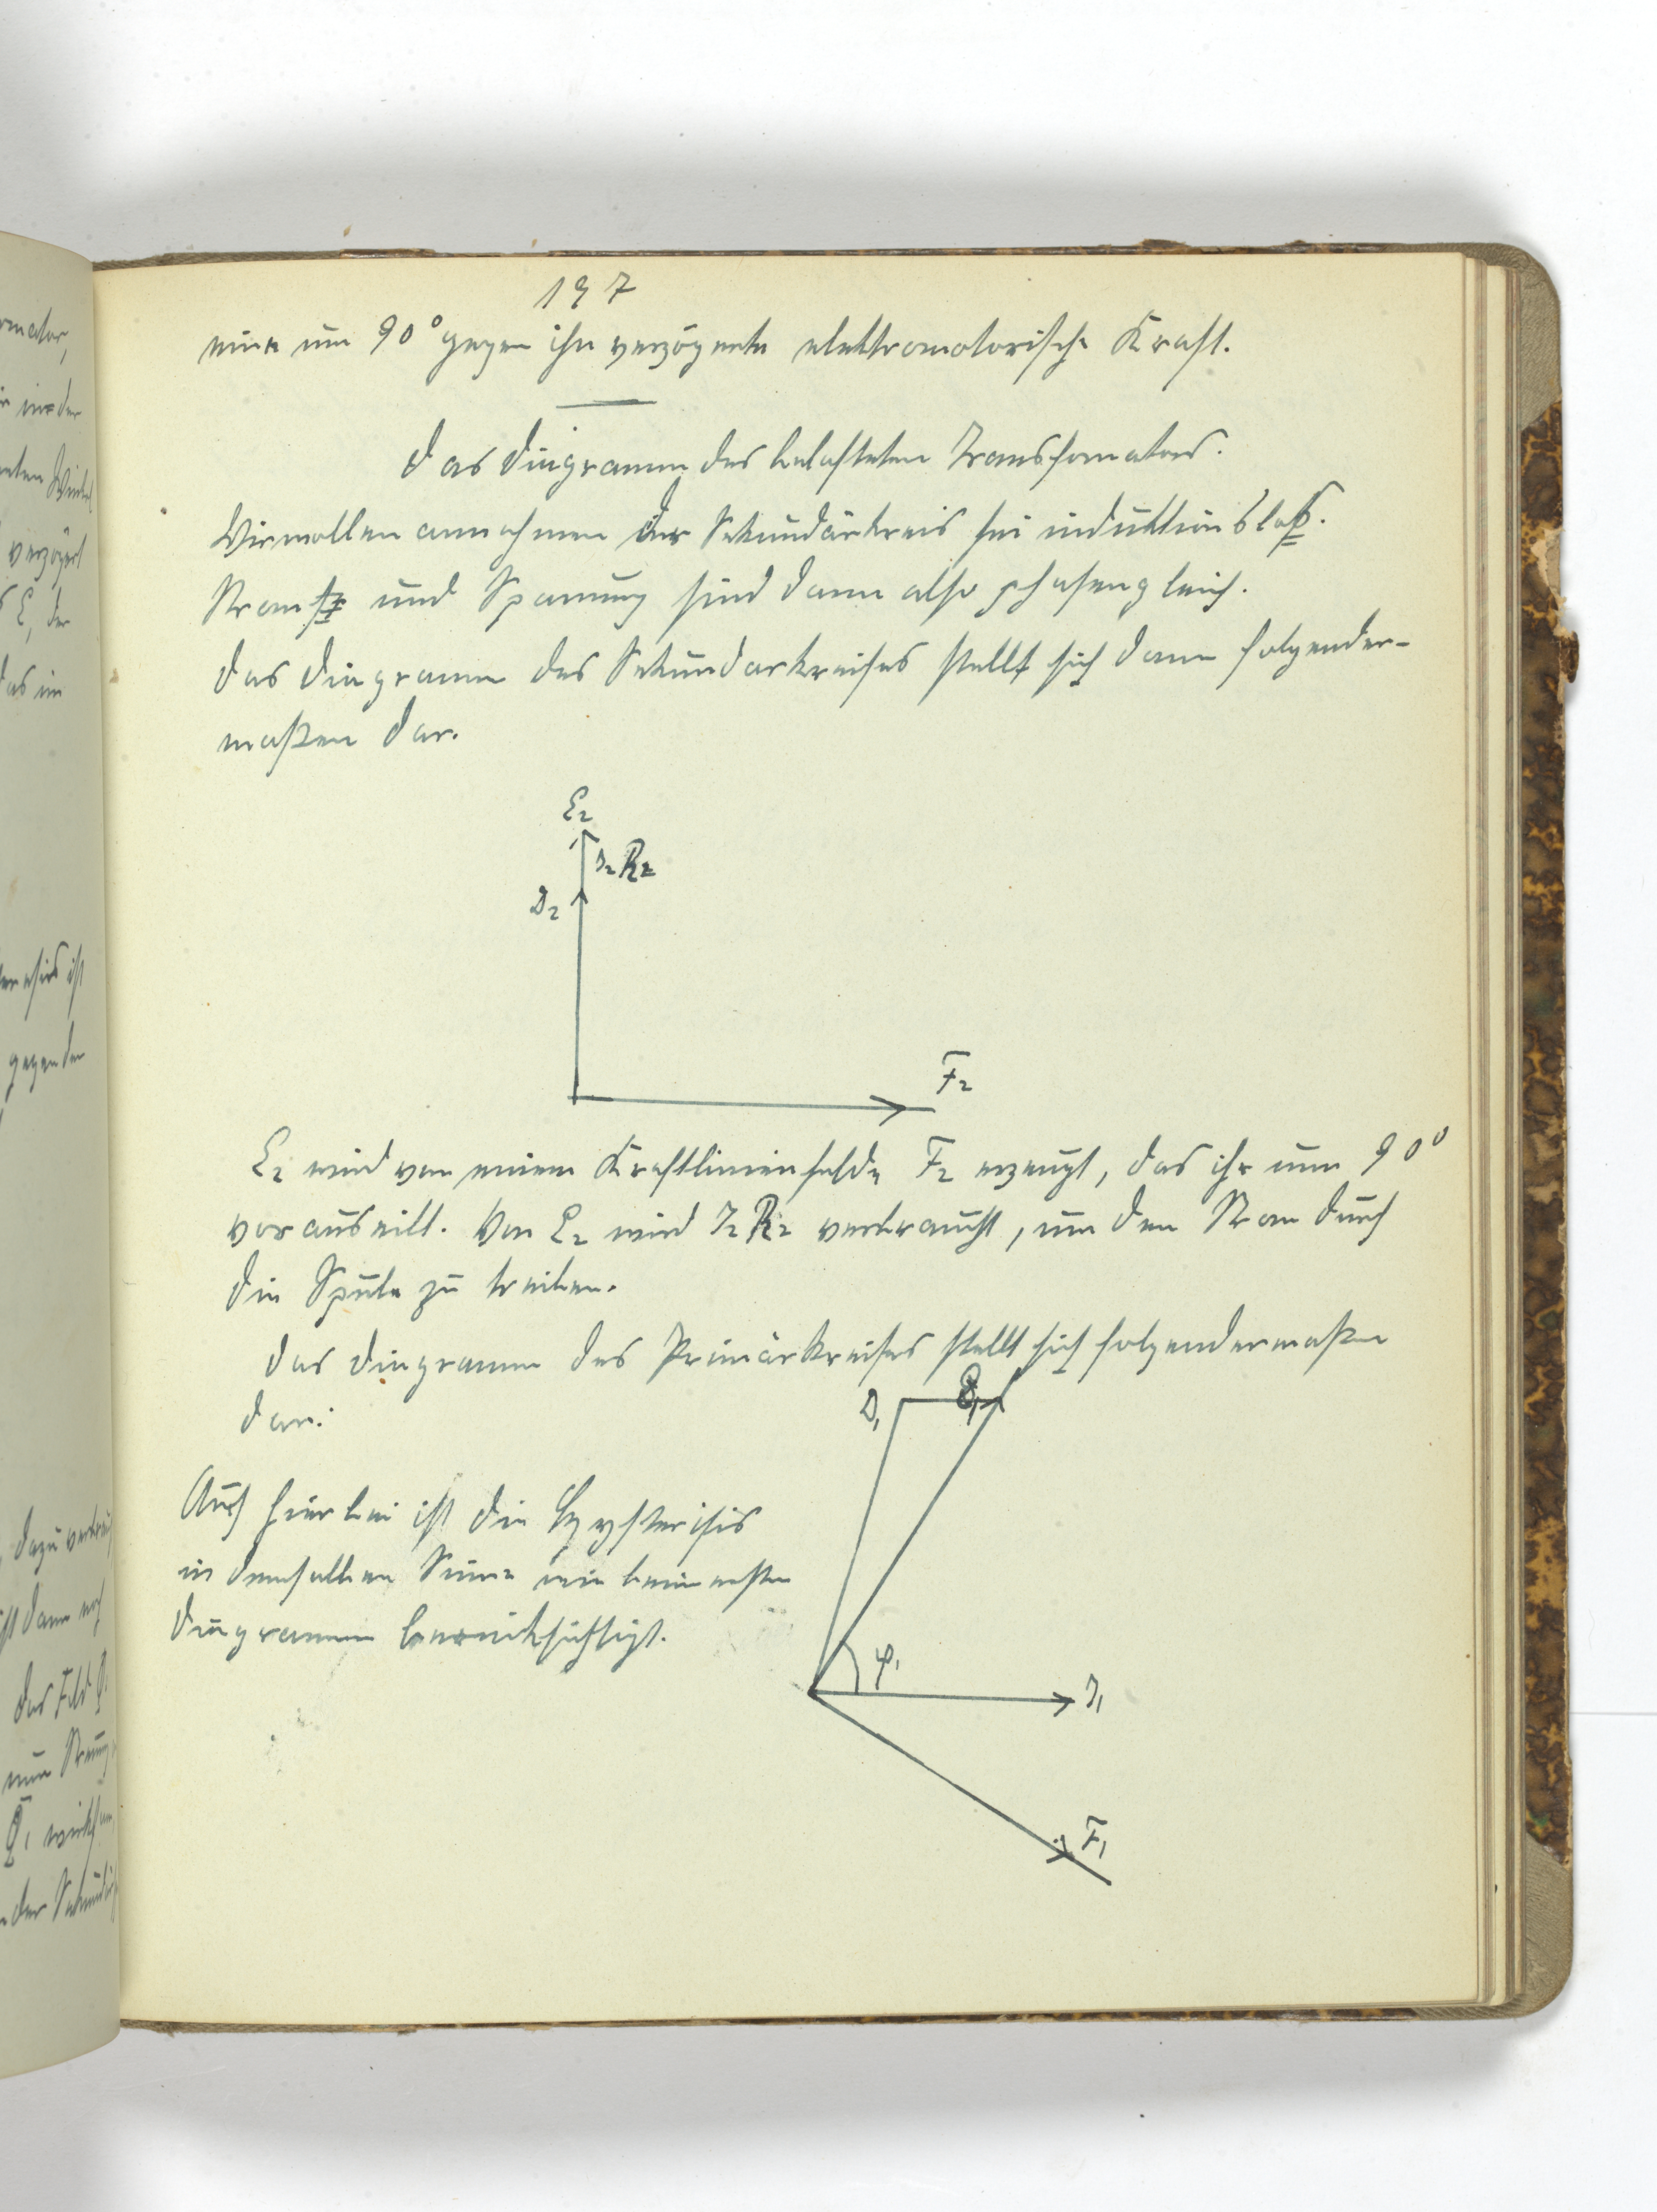 rmator,
in der
verzögert
E, der
das im
ist
gegen den
dazu
ist dann
das Feld
nun
197
eine um 90° gegen ihn verzögerte elektromotorische Kraft.
Das Diagramm des belasteten Transfomators.
Wir wollen annehmen der Sekundärkreis sei induktionslos.
Strom und Spannung sind dann also phasengleich.
Das Diagramm des Sekundarkreises stellt sich dann folgender-
maßen dar.
E2
J2 R2
J2
F2
E2 wird von einem Kraftlinienfelde F2 erzeugt, das ihr um 90°
vorauseilt. Von E2 wird J2 R2 verbraucht, um den Strom durch
die Spule zu treiben.
Das Diagramm des Primärkreises stellt sich folgendermaßen
dar:
Auch hierbei ist die Hysterisis
in demselben Sinne wie beim ersten
Diagramm berücksichtigt.
φ1
J1
F1